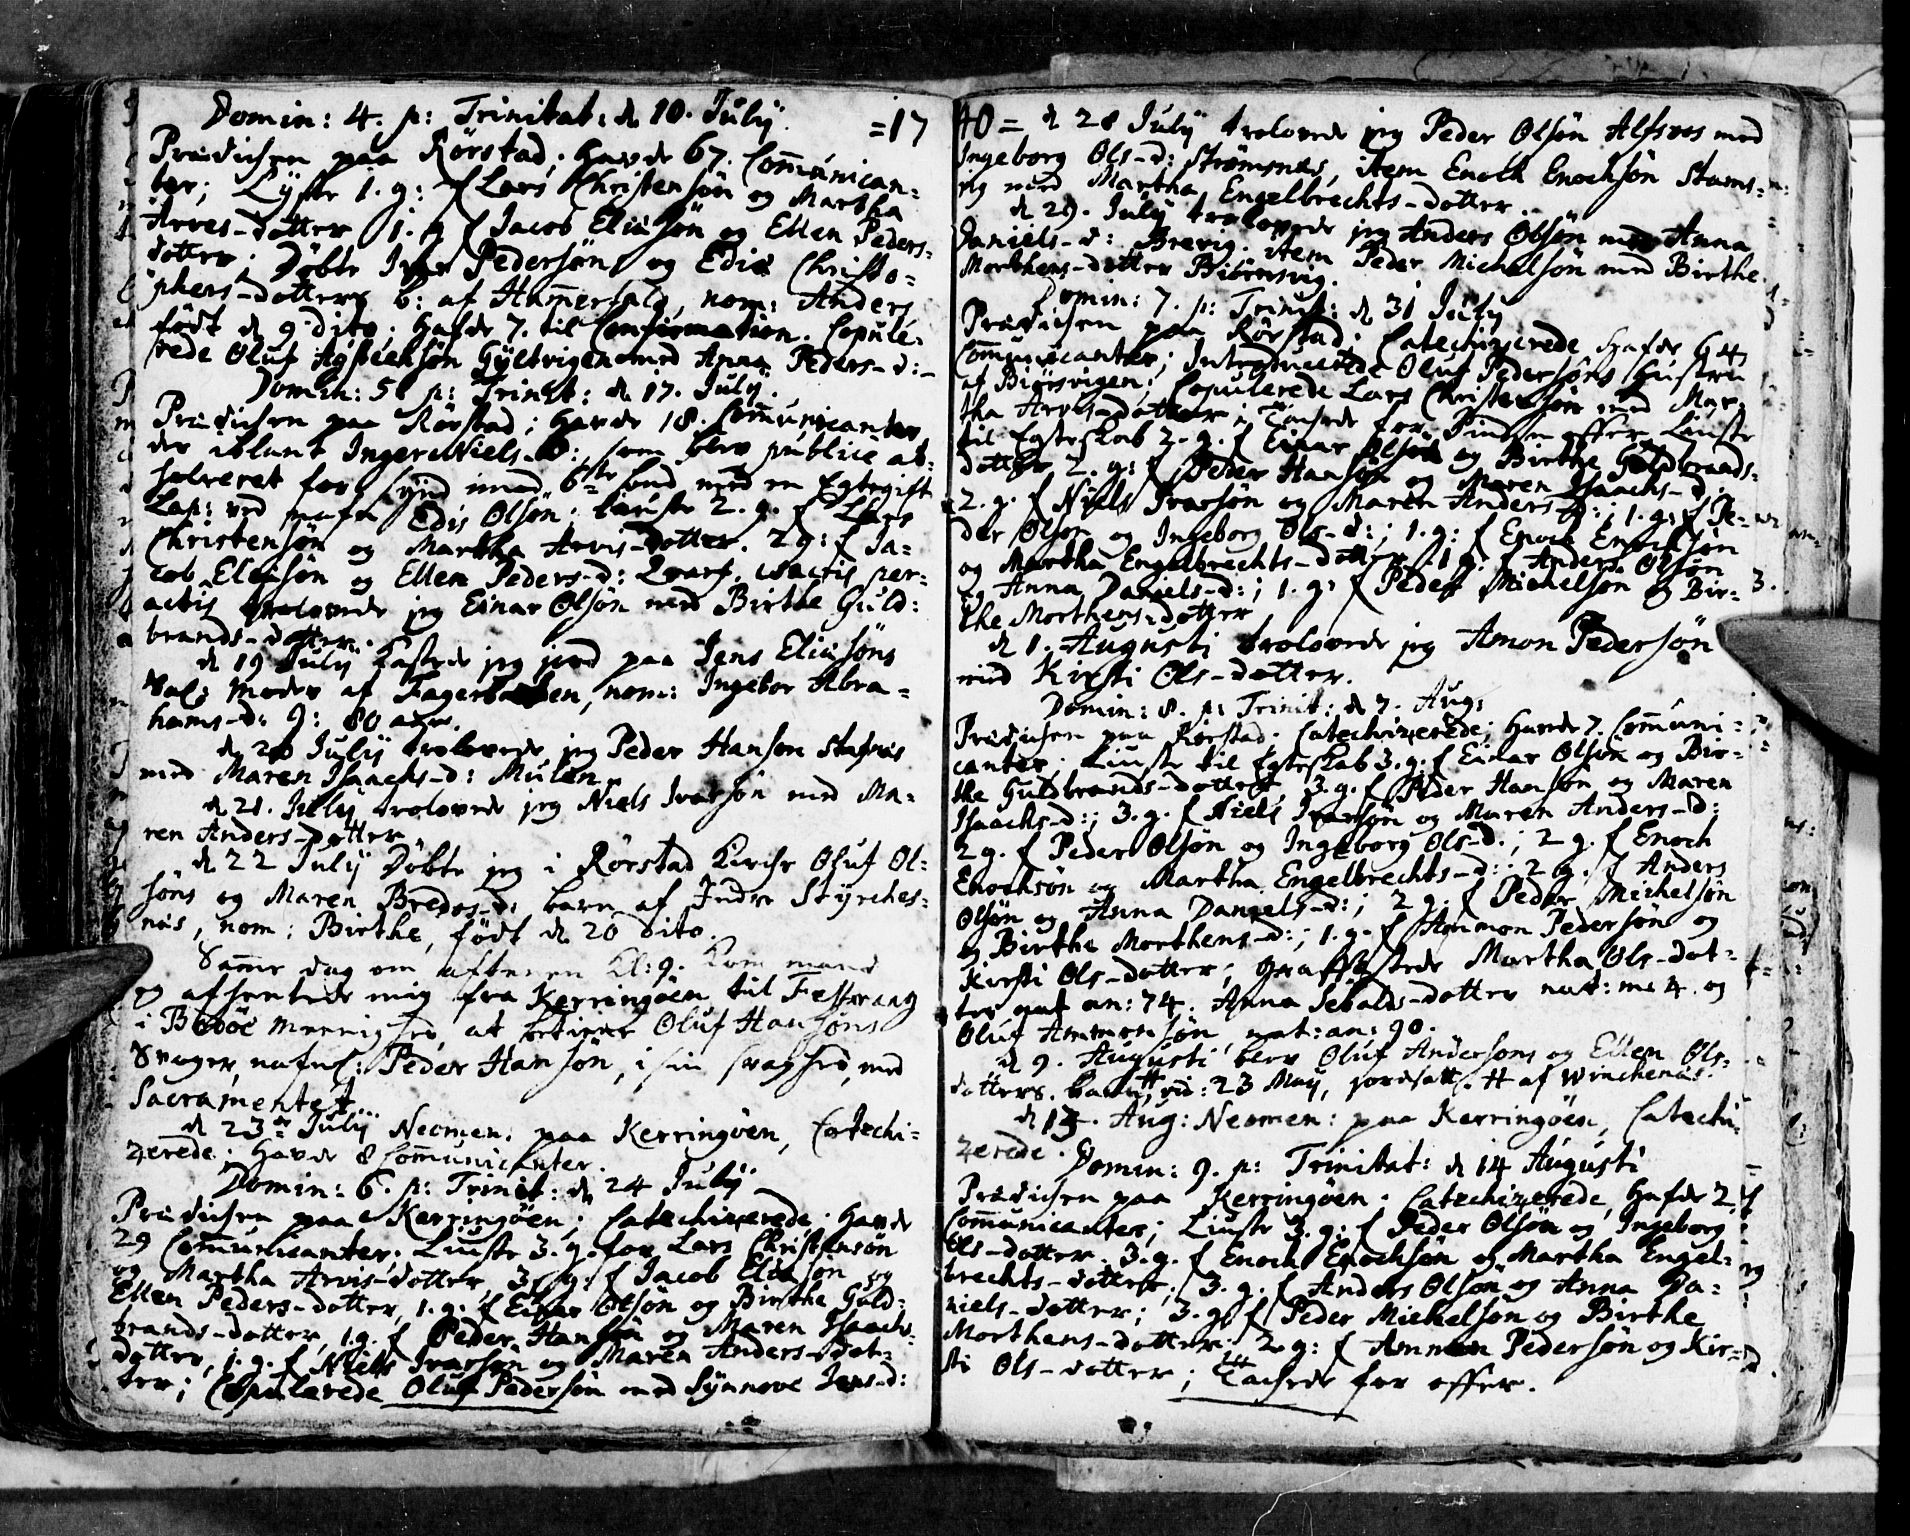 Domin: 4. p: Trinitat: d 10. Julij. =17
Prædichen paa Rörstad; havde 67. Communican=
ter; Lyste 1. g: f Lars Christensön og Martha
Arves-dotter 1. g f Jacob Eliæsön og Ellen Peders-
dotter. Döbte Iver Pedersön og Edis Christo=
phers-dotters b: af Hamerfald, nom: Anders
född d 9 dito; hafde 7. til Confirmation. Copule=
rede Oluf Agstensön Gyltvigen med Anna Peders-d:
Domin: 5 p: Trinit: d 17. Julij.
Prædichen paa Rörstad; havde 18. Communicanter
der iblant Inger Niels-D:, som blev publice ab=
solveret for synd imod 6te bud med en Egtegift
Lap: ved nafn Edis Olsön. Liuste 2. g. f Lars
Christensön og Martha Arvis-dotter. 2 g: f Ja=
cob Eliæsön og Ellen Peders-d: sacris per=
actis trolovede jeg Einar Olsön med Birthe Guld=
brands-dotter.
d 19 Julij kastede jeg jord paa Jens Eliæsöns
Sal: Moder af Fagerbachen, nom: Ingebor Abra=
hams-d: g: 80 aar.
d 20 Julij trolovede jeg Peder Hansön Stafnæs
med Maren Isaachs-d: Mulen.
d 21. Julij trolovede jeg Niels Ivarsön med Ma=
ren Anders-dotter
d 22 Julij Döbte jeg i Rörstad Kirche Oluf Ol=
söns og Maren Bredes-d: barn af Indre Styrches=
næs, nom: Birthe, födt d 20 dito.
Samme dag om aftenen Kl: 9. kom mand
og afhentede mig fra Kerringöen til Festvaag
i Bodöe Menighed, at betiene Oluf Hansöns
Svager, nafnl: Peder Hansön, i sin svaghed, med
Sacramentet
d 23de Julij Neomen: paa Kerringöen, Catechi=
zerede. Havde 8 Communicanter.
Domin: 6. p: Trinit: d 24 Julij
Prædichen paa Kerringöen; Catechizerede. Havde
29 Communicanter; Liuste 3. g. for Lars Christensön
og Martha Arvis-dotter, 3. g: f Jacob Eliæsön og
Ellen Peders-dotter, 1. g: f Einar Olsön og Birthe Guld=
brands-dotter, 1. g. f Peder Hansön og Maren Isaachs-
dotter, 1. g. f Niels Ivarsön og Maren Anders-dot=
ter; Copulerede Oluf Pedersön med Synnove Jens-d:
40= d 28 Julij trolovede jeg Peder Olsön Alfsnes med
Ingeborg Ols-d: Strömsnæs, item Enoch Enochsön Stams=
vig med Martha Engelbrechts-dotter.
d 29. Julij trolovede jeg Anders Olsön med Anna
Daniels-d: Brevig. item Peder Michelsön med Birthe
Morthens-dotter Biörnsvig.
Domin: 7. p: Trinit: d 31 Julij
Prædichen paa Rörstad; Catechizerede hafde 64
Communicanter; Introducerede Oluf Pedersöns Hustru
af Biörsvigen. Copulerede Lars Christensön med Mar=
tha Arvis-dotter; Tachede for Pindse offer. Liuste
til Egteskab 2. g. f Einar Olsön og Birthe Guldbrands-
dotter 2. g: f Peder Hansön og Maren Isaachs-d:
2. g. f Niels Ivarsön og Maren Anders-D:; 1. g: f Pe=
der Olsön og Ingeborg Ols-d:; 1. g: f Enoch Enochsön
og Martha Engelbrechts-dotter 1 g: f Anders Olsön
og Anna Daniels-d:; 1. g: f Peder Michelsön og Bir=
the Morthens-dotter
d 1. Augusti trolovede jeg Amon Pedersön
med Kirsti Ols-dotter.
Domin: 8. p: Trinit: d 7. Aug:
Prædichen paa Rörstad. Catechizerede; havde 7. Communi=
canter. Liuste til Egteskab 3. g. f Einar Olsön og Bir=
the Guldbrands-dotter 3. g. f Peder Hansön og Maren
Isaachs-d:; 3. g. f Niels Ivarsön og Maren Anders-D:
2 g. f Peder Olsön og Ingeborg Ols-D.; 2 g. f Enoch
Enochsön og Martha Engelbrechts-d:; 2 g. f Anders
Olsön og Anna Daniels-d:; 2 g. f Peder Michelsön
og Birthe Morthens-d:; 1. g. f Ammon Pedersön og
Kirsti Ols-dotter; Martha Ols-dot=
ter nat an: 74. Anna Sebalds-dotter nat: me 4. og
Oluf Ammonsön, nat: an: 90.
d 9. Augusti blev Oluf Andersöns og Ellen Ols-
dotters. barn, vid: 23 Maij, jordsatt. # af Winchenæs.
d 13. Aug: Neomen: paa Kerringöen, Catechi=
zerede.
Domin: 9. p: Trinitat: d 14 Augusti
Prædichen paa Kerringöen. Catechizerede, hafde 2
Communicanter; Liuste 3. g: f Peder Olsön og Ingeborg
Ols-dotter. 3. g. f Enoch Enochsön og Martha Engel=
brechts-dotter, 3. g. f Anders Olsön og Anna Da=
niels-dotter; 3. g. f Peder Michelsön og Birthe
Morthens-dotter; 2. g: f Ammon Pedersön og Kir=
sti Ols-dotter; Tachede for offer.